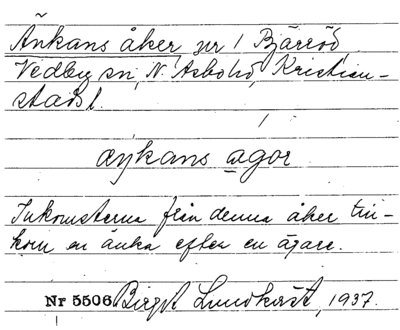 Änkans åker, nr 1 Bjäreröd,
Vedby sn, N. Åsbo hd, Kristian-
stads l.
äŋkans agor
Inkomsterna från denna åker till-
kom en änka efter en ägare.
Nr 5506 Birgit Lundkvist, 1937.